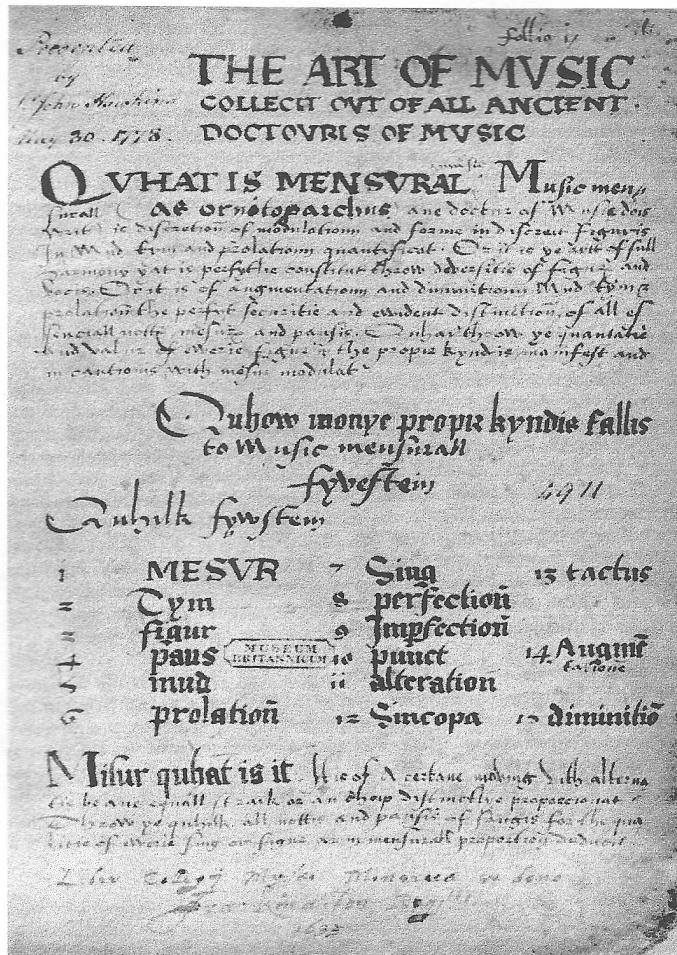 Presented
by
Sr John Hawkins
May 30. 1778.
follio i
THE ART OF MVSIC
COLLECIT OVT OF ALL ANCIENT
DOCTOVRIS OF MVSIC
QVHAT IS MENSVRAL Music men
surall as ornitoparchus ane doctur of Music dois
writ is discretion of modulationn and forme in discreit figuris
In Mud tym and prolationn quantificat. Or it is ye artt of full
harmony yat is perfytlie constitut throw diversitie of figuris and
vocis. Or it is of augmentationn and diminitionn Mud tym
prolation the perfyt securitie and evident distinction, of all es
senciall nottis, mesur and pausis. Quhar throw ye quantatie
and valur of everie figur the propir kynd is manifest and
in cantionis with mesur modulat
Quhow monye propir kyndis fallis
to Music mensurall
fyvestein
4911
Quhilk fywstein
1 MESVR 7 Sing 13 tactus
2 Tym 8 perfectioñ
3 figur 9 Impfectioñ
4 paus 10 punct 14 Augmē
tatione
MUSEUM
BRITANNICUM
5 mud 11 alteration
6 prolatioñ 12 Sincopa 15 diminitiō
Misur quhat is it. It is of A certane moving with alterna
be ane equall straik or an shoip distinctlye proporcionat
Throw ye quhilk all nottis and pausis of sangis for the qua
litie of everie sing or figur ar in mensurall proportion deducit
1633